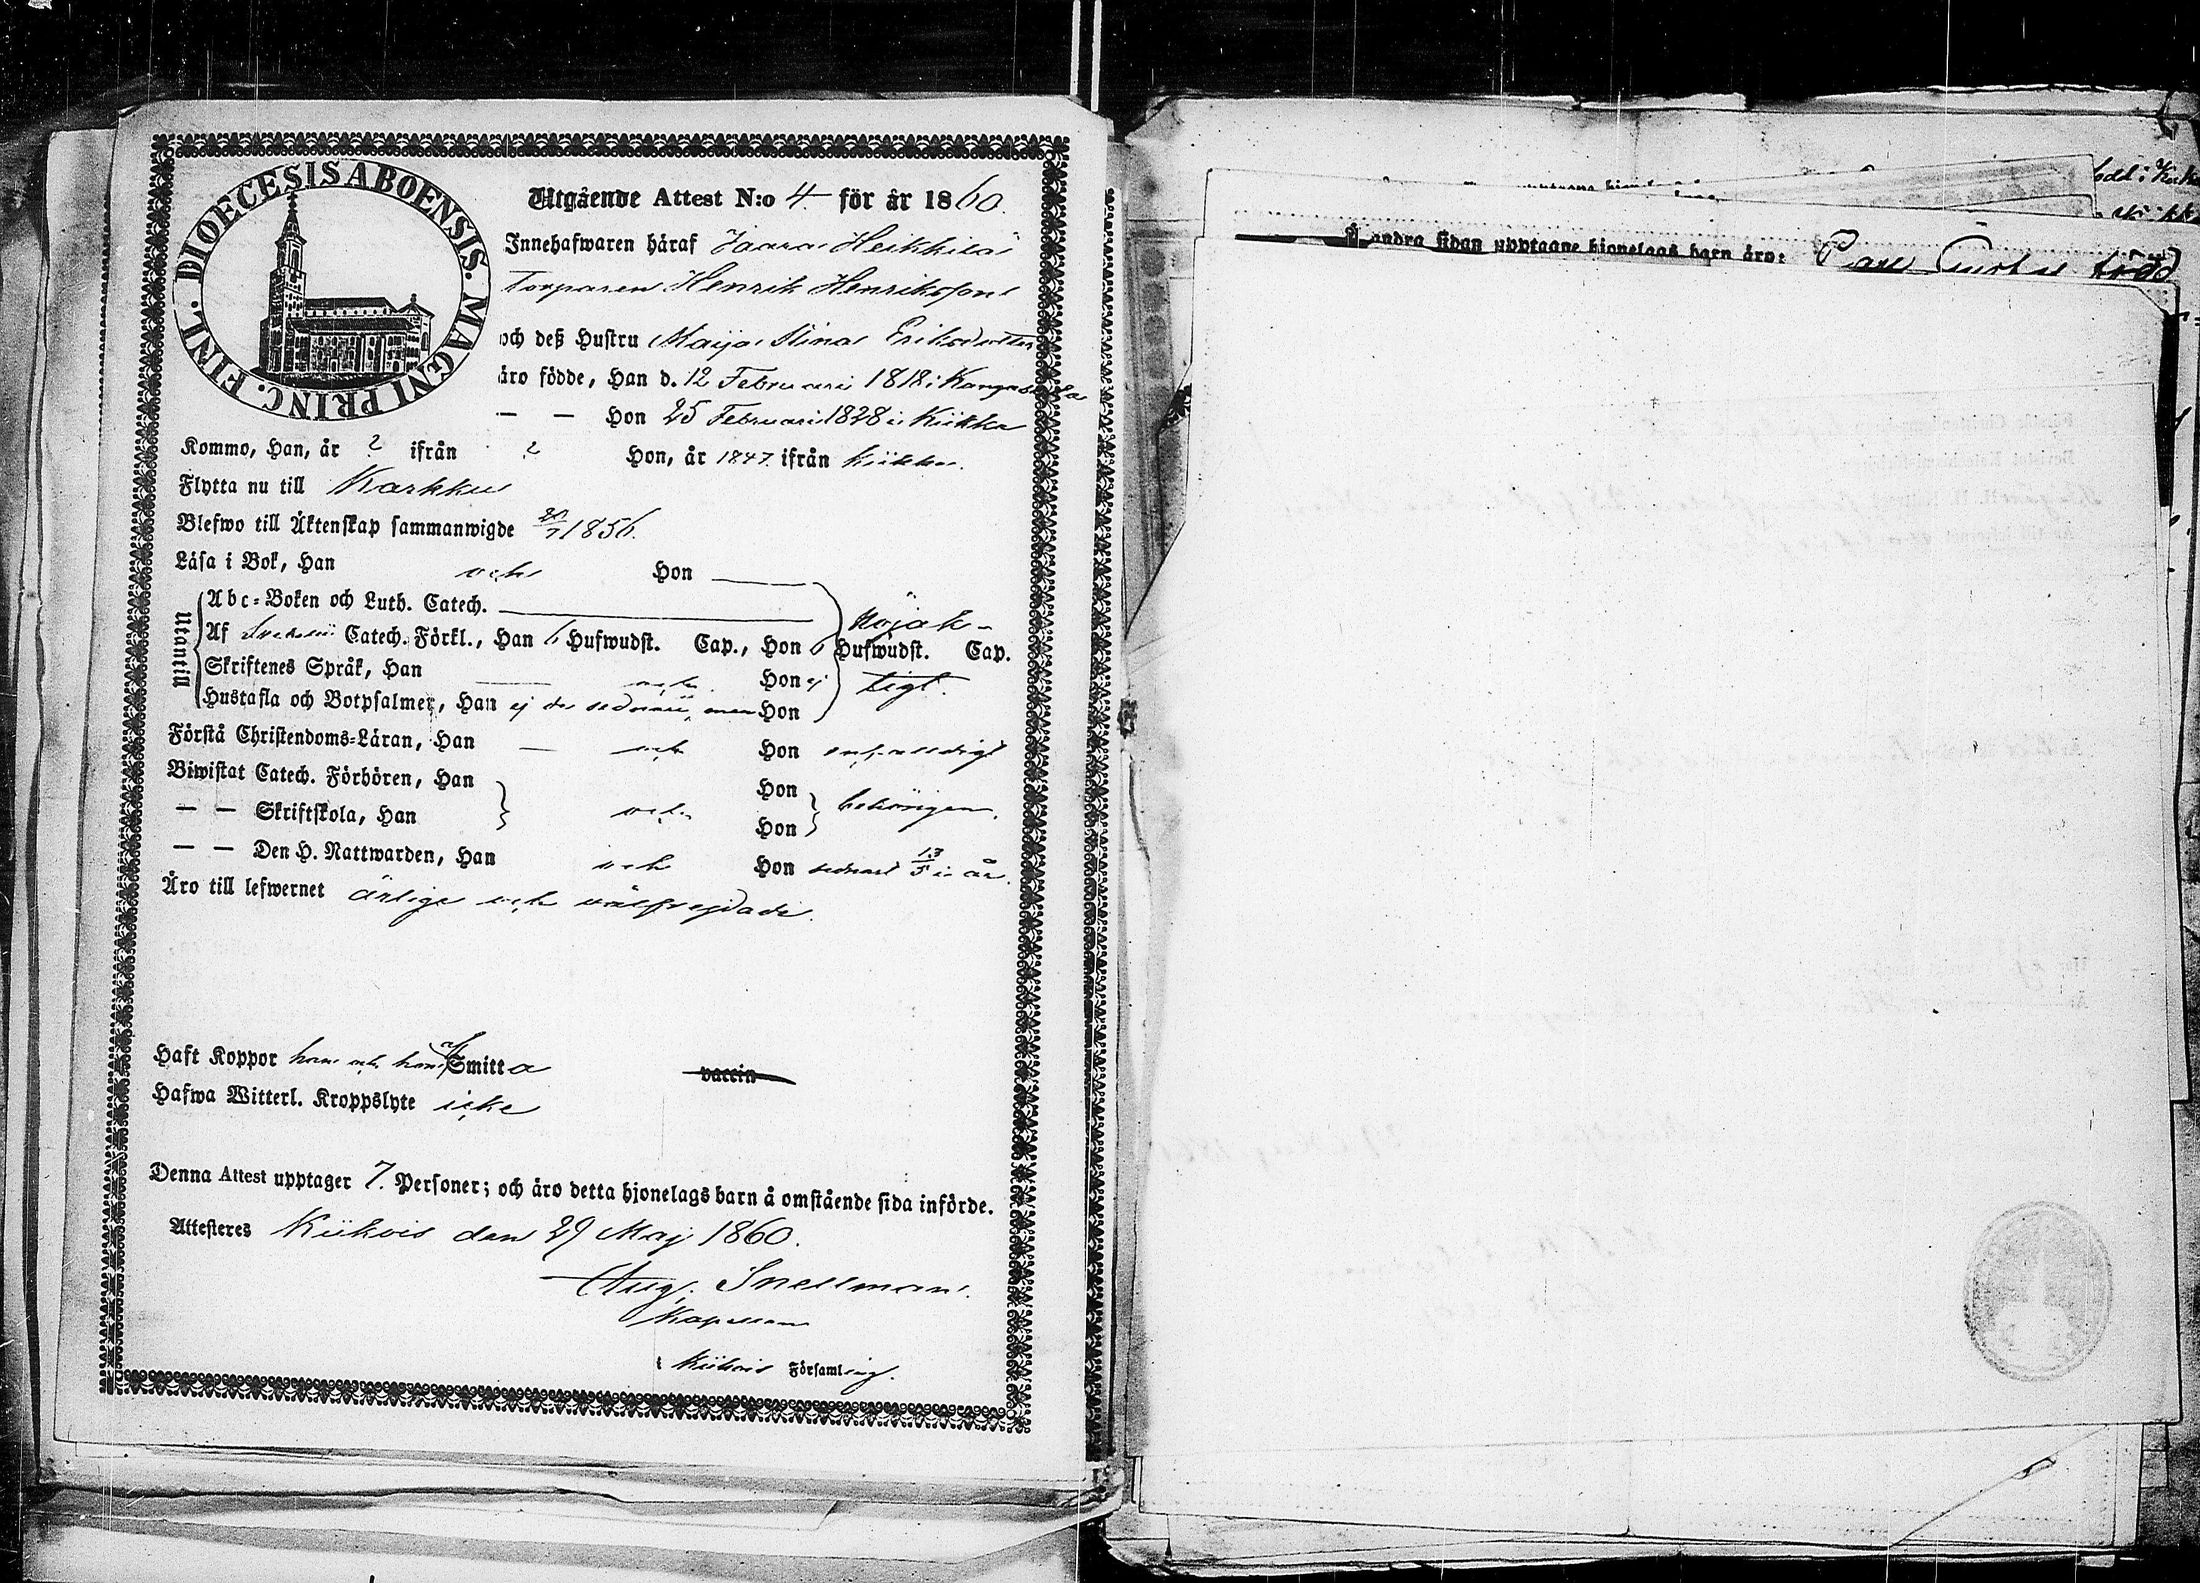 DIOECESIS ABOENSIS. MAGNI PRINC. FINL.
Utgående Attest N:o 4. för år 1860.
Innehafwaren häraf Jaara Heikkilä
torparen Henrik Henriksson
och deß Hustru Maija Stina Eriksdotter
äro födde, Han d. 12 Februari 1818 i Kangasala
— — Hon 25 Februari 1828 i Kiikka
Kommo, Han, år ? ifrån ? Hon, år 1847. ifrån Kiikka.
Flytta nu till Karkku
Blefwo till Äktenskap sammanwigde 1856.
Läsa i Bok, Han och Hon
Utantill
Abc-Boken och Luth. Catech.
nöjak-
Af Svebelii Catech. Förkl., Han 6 Hufwudst. Cap., Hon 6 Hufwudst. Cap.
Skriftenes Språk, Han och Hon ej
tigt.
Hustafla och Botpsalmer, Han ej de sednare, men Hon
Förstå Christendoms-Läran, Han — och Hon enfaldigt
Biwistat Catech. Förhören, Han Hon
och behörigen.
— — Skriftskola, Han Hon
— — Den H. Nattwarden, Han och Hon sednast 13/5 i år.
Äro till lefwernet ärliga och välfrejdade.
Haft Koppor han och hon af Smitta vaccin
Hafwa Witterl. Kroppslyte icke
Denna Attest upptager 7. Personer; och äro detta hjonelags barn å omstående sida införde.
Attesteres Kiikois den 29 Maj 1860.
Aug. Snellman.
Kapellan
i Kiikois Församling.
född i
Å andra sidan upptagne hjonelags barn äro: född